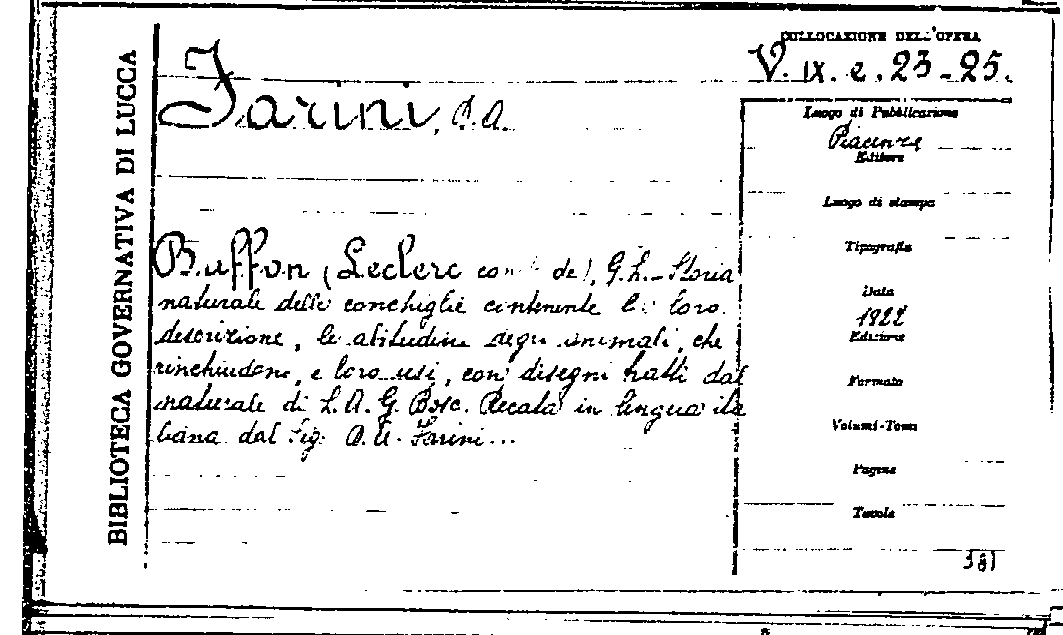 BIBLIOTECA GOVERNATIVA DI LUCCA
COLLOCAZIONE DELL'OPERA
V. IX. e. 23-25.
Farini, A.A.
Luogo di Pubblicazione
Piacenza
Editore
Luogo di stampa
Tipografia
Data
1822
Edizione
Formato
Volumi-Tomo
Pagine
Tavole
381
Buffon (Leclerc de), G.L. - Storia
naturale delle conchiglie contenente la loro
descrizione, le abitudini degli animali, che
rinchiudono, e loro usi, con disegni tratti dal
naturale di L.A.G. Bosc. Recata in lingua ita
liana dal Sig. Farini...